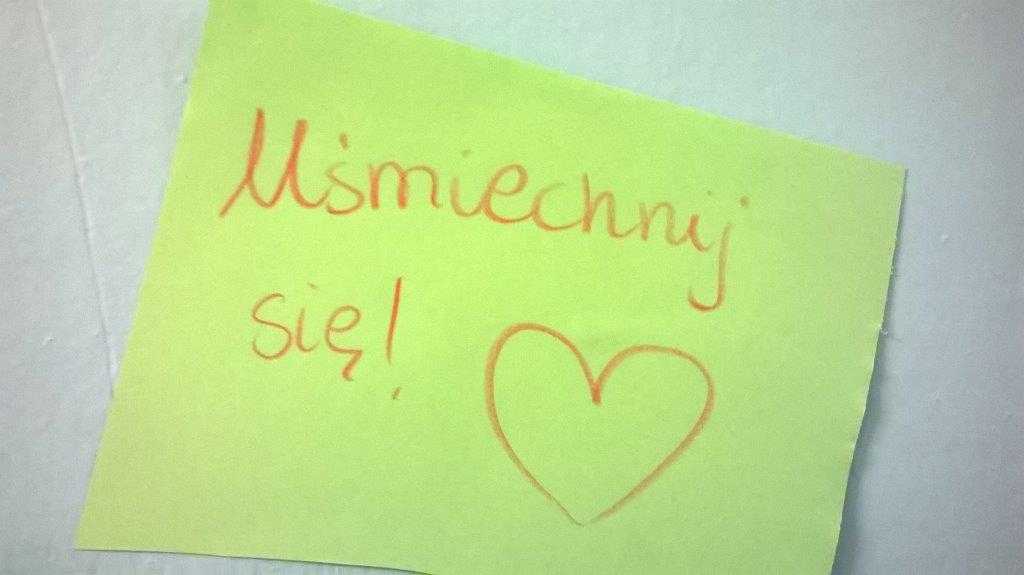 Uśmiechnij
się!